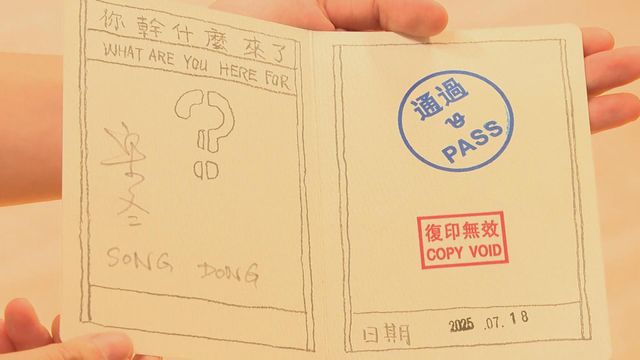 你幹什麼來了
WHAT ARE YOU HERE FOR
?
宋冬
SONG DONG
通過
PASS
復印無效
COPY VOID
日期 2025.07.18